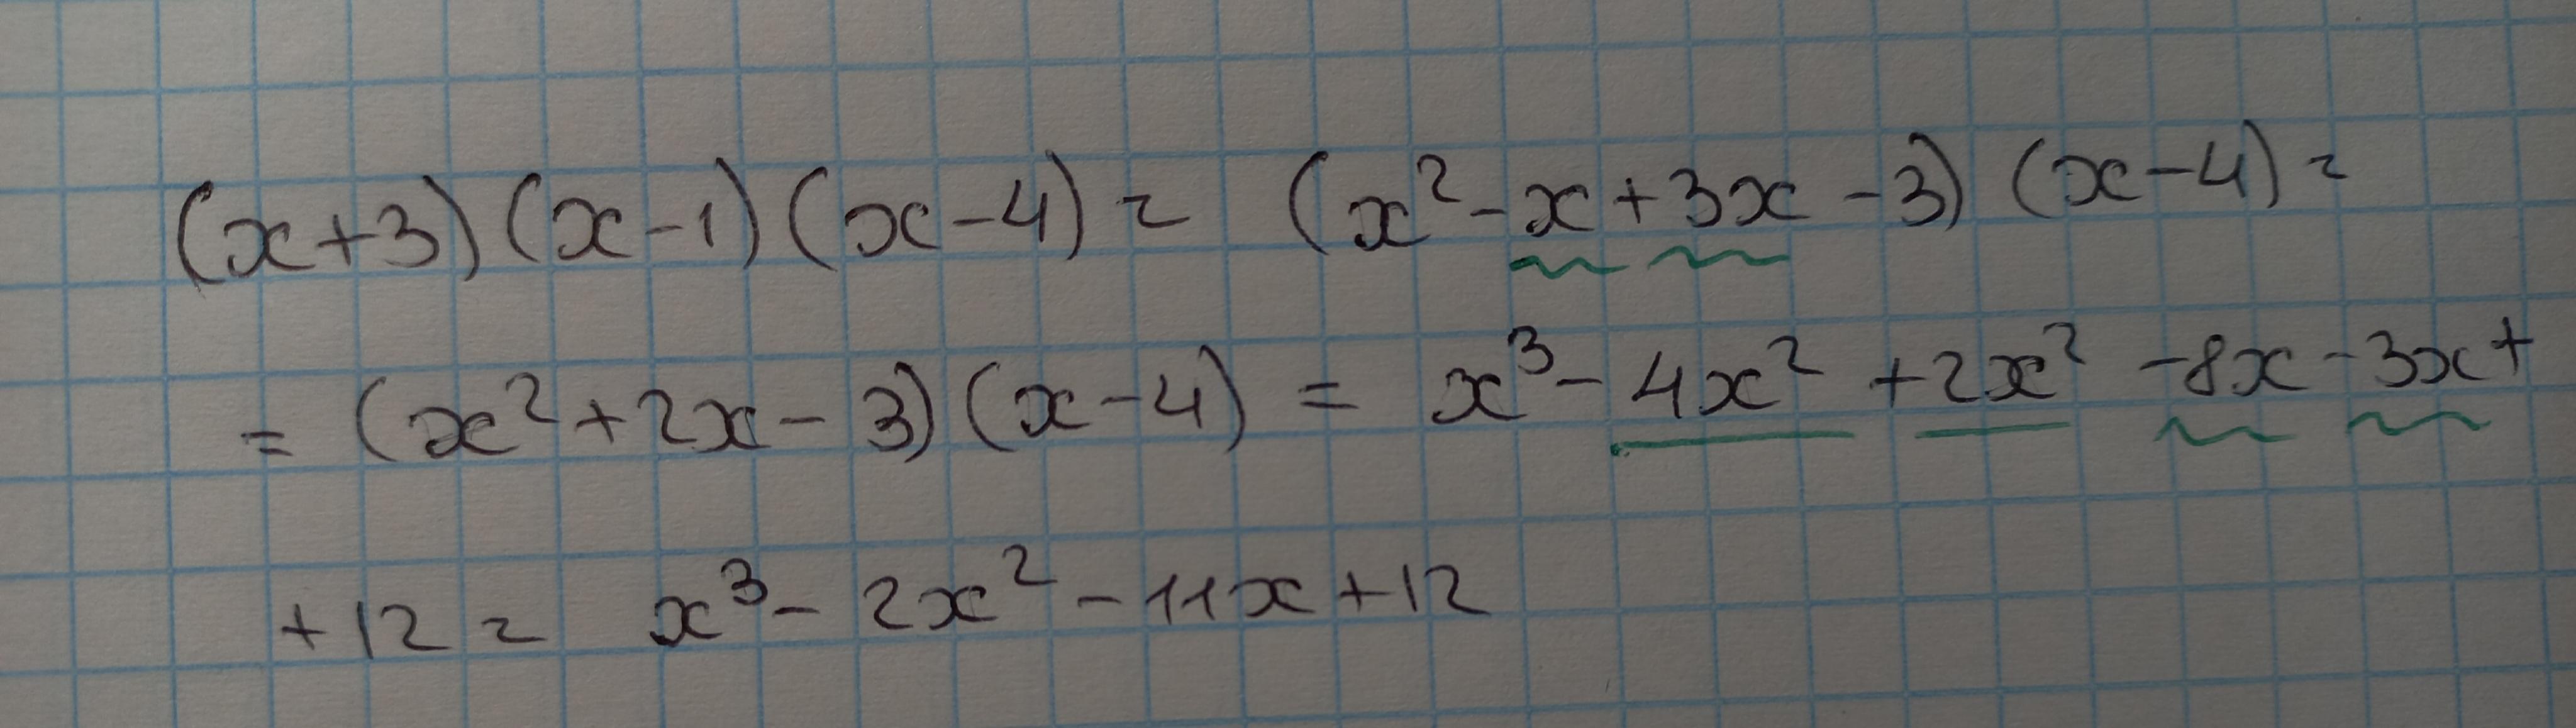 (x+3)(x-1)(x-4) = (x²-x+3x-3)(x-4) =
= (x²+2x-3)(x-4) = x³-4x²+2x²-8x-3x+
+12 = x³-2x²-11x+12